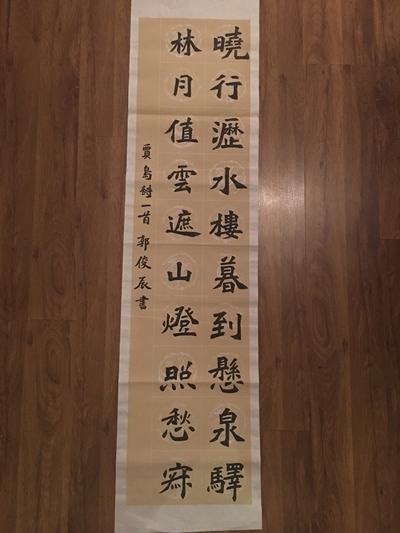 曉行瀝水樓暮到懸泉驛
林月值雲遮山燈照愁寂
賈島詩一首 郭俊辰書